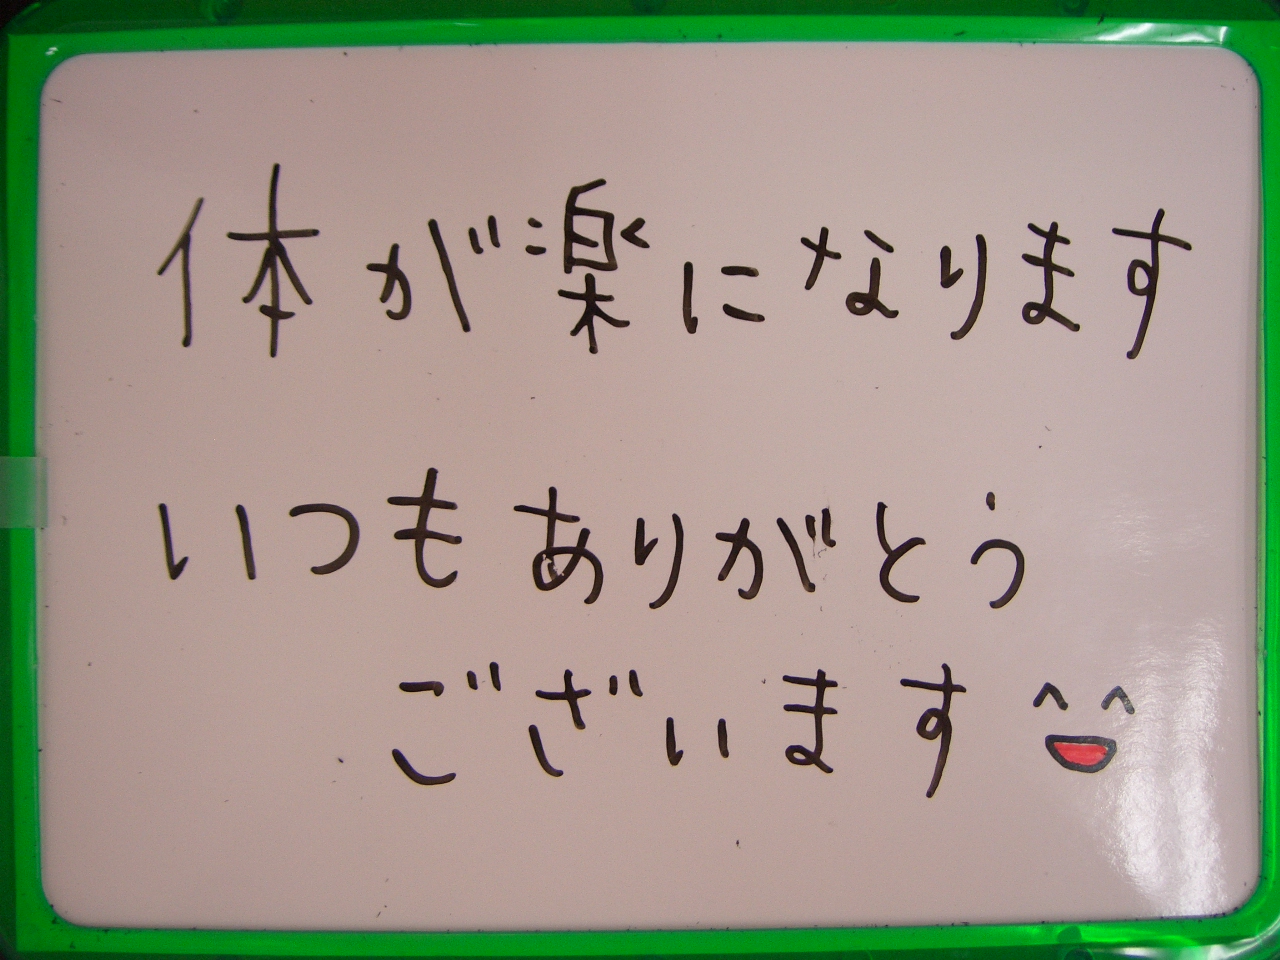 体が楽になります
いつもありがとう
ございます